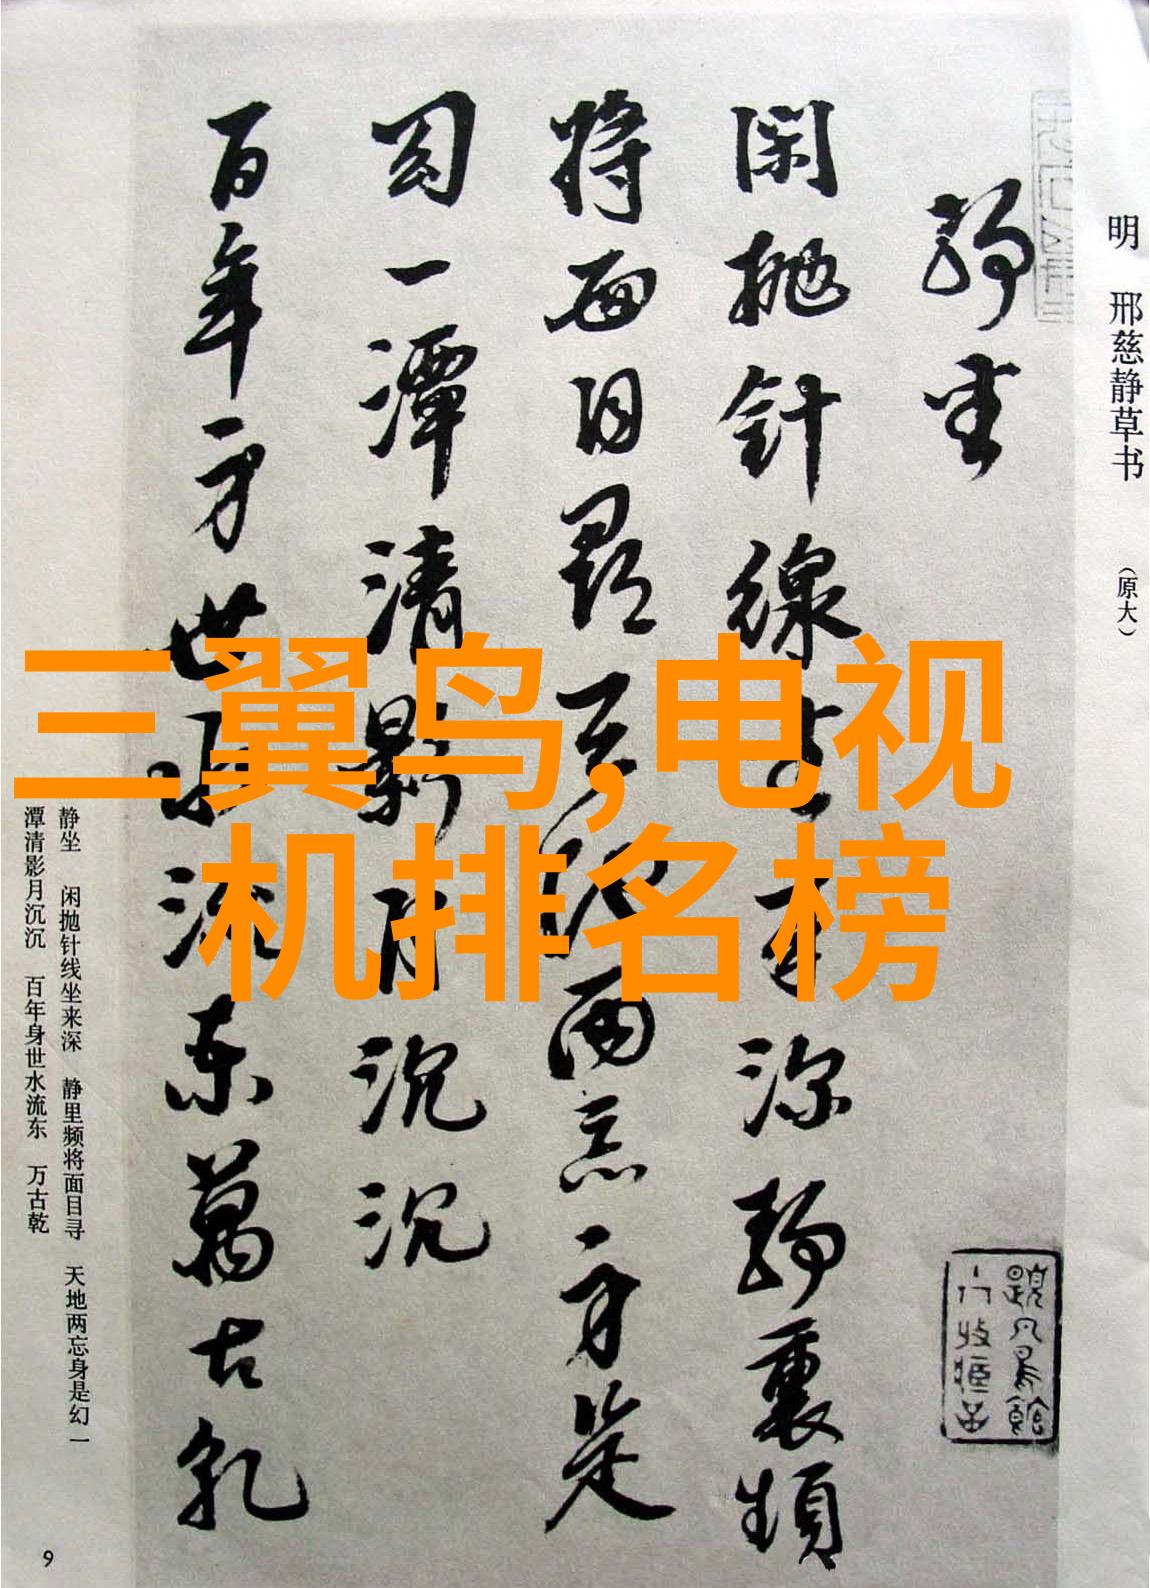 明 邢慈静草书 （原大）
静坐
闲抛针線坐来深静裏頻
将面目尋天地两忘身是
幻一潭清影月沉沉
百年身世水流东萬古乾
三翼鸟,电视
机排名榜
静坐 闲抛针线坐来深 静里频将面目寻 天地两忘身是幻 一
潭清影月沉沉 百年身世水流东 万古乾
9